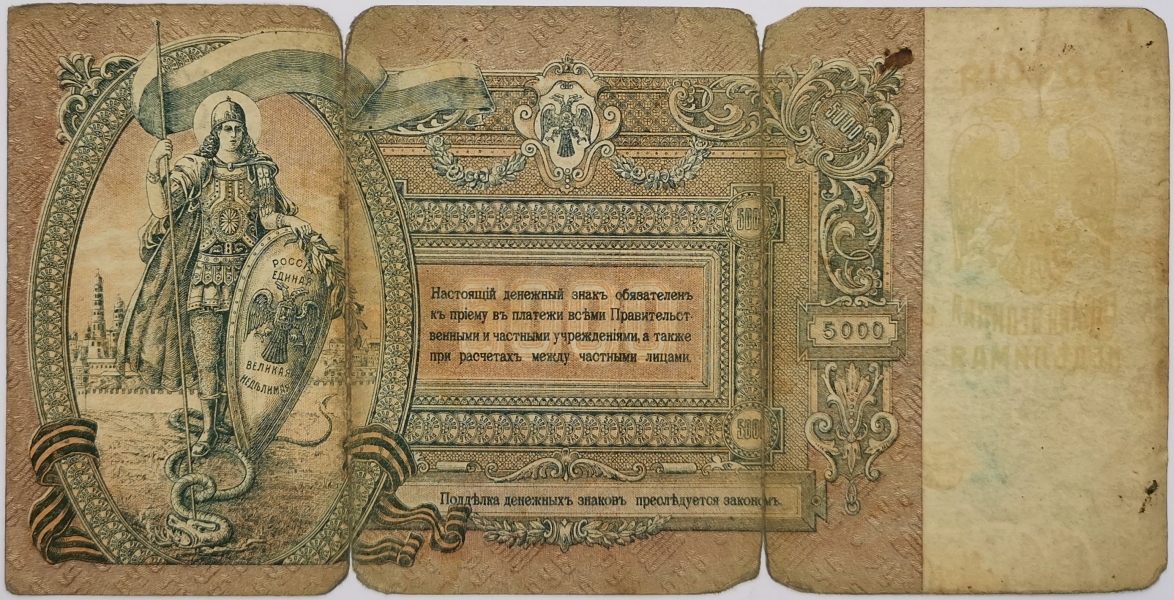 5000
РОССІЯ
ЕДИНАЯ
ВЕЛИКАЯ
НЕДѢЛИМАЯ
500
Настоящій денежный знакъ обязателенъ
къ пріему въ платежи всѣми Правительст-
венными и частными учрежденіями, а также
при расчетахъ между частными лицами.
5000
500
Поддѣлка денежныхъ знаковъ преслѣдуется закономъ.